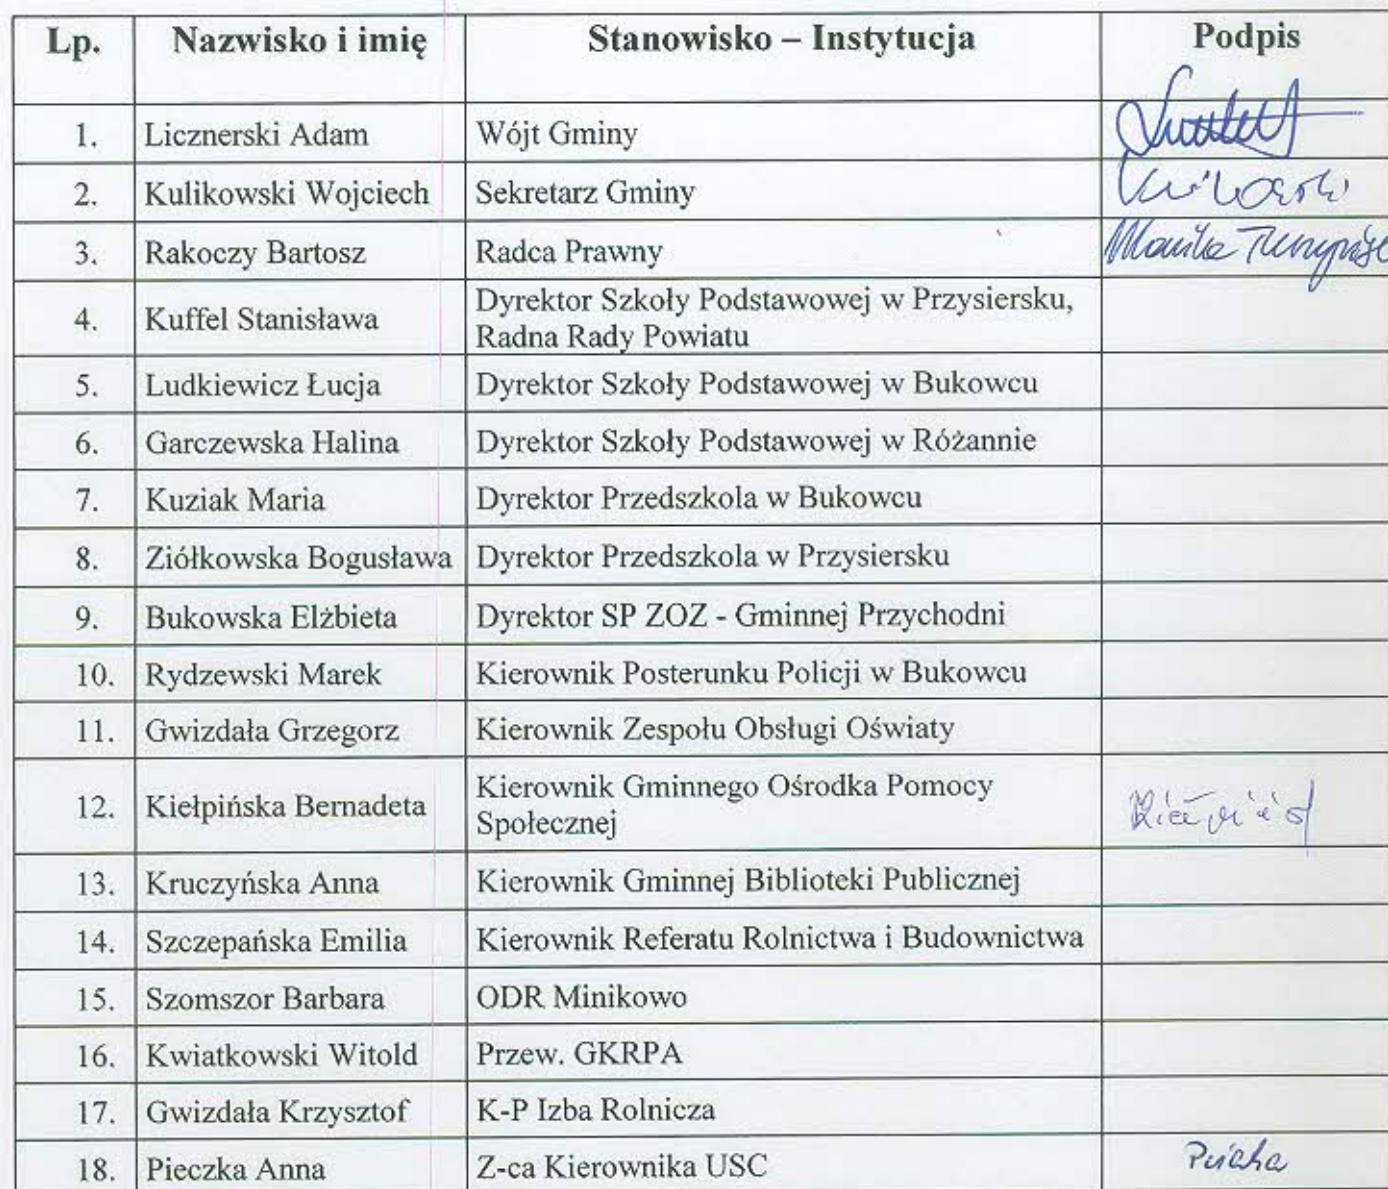 Lp. Nazwisko i imię Stanowisko – Instytucja Podpis
1. Licznerski Adam Wójt Gminy
2. Kulikowski Wojciech Sekretarz Gminy
3. Rakoczy Bartosz Radca Prawny Monika
4. Kuffel Stanisława Dyrektor Szkoły Podstawowej w Przysiersku,
Radna Rady Powiatu
5. Ludkiewicz Łucja Dyrektor Szkoły Podstawowej w Bukowcu
6. Garczewska Halina Dyrektor Szkoły Podstawowej w Różannie
7. Kuziak Maria Dyrektor Przedszkola w Bukowcu
8. Ziółkowska Bogusława Dyrektor Przedszkola w Przysiersku
9. Bukowska Elżbieta Dyrektor SP ZOZ - Gminnej Przychodni
10. Rydzewski Marek Kierownik Posterunku Policji w Bukowcu
11. Gwizdała Grzegorz Kierownik Zespołu Obsługi Oświaty
12. Kiełpińska Bernadeta Kierownik Gminnego Ośrodka Pomocy
Społecznej
13. Kruczyńska Anna Kierownik Gminnej Biblioteki Publicznej
14. Szczepańska Emilia Kierownik Referatu Rolnictwa i Budownictwa
15. Szomszor Barbara ODR Minikowo
16. Kwiatkowski Witold Przew. GKRPA
17. Gwizdała Krzysztof K-P Izba Rolnicza
18. Pieczka Anna Z-ca Kierownika USC